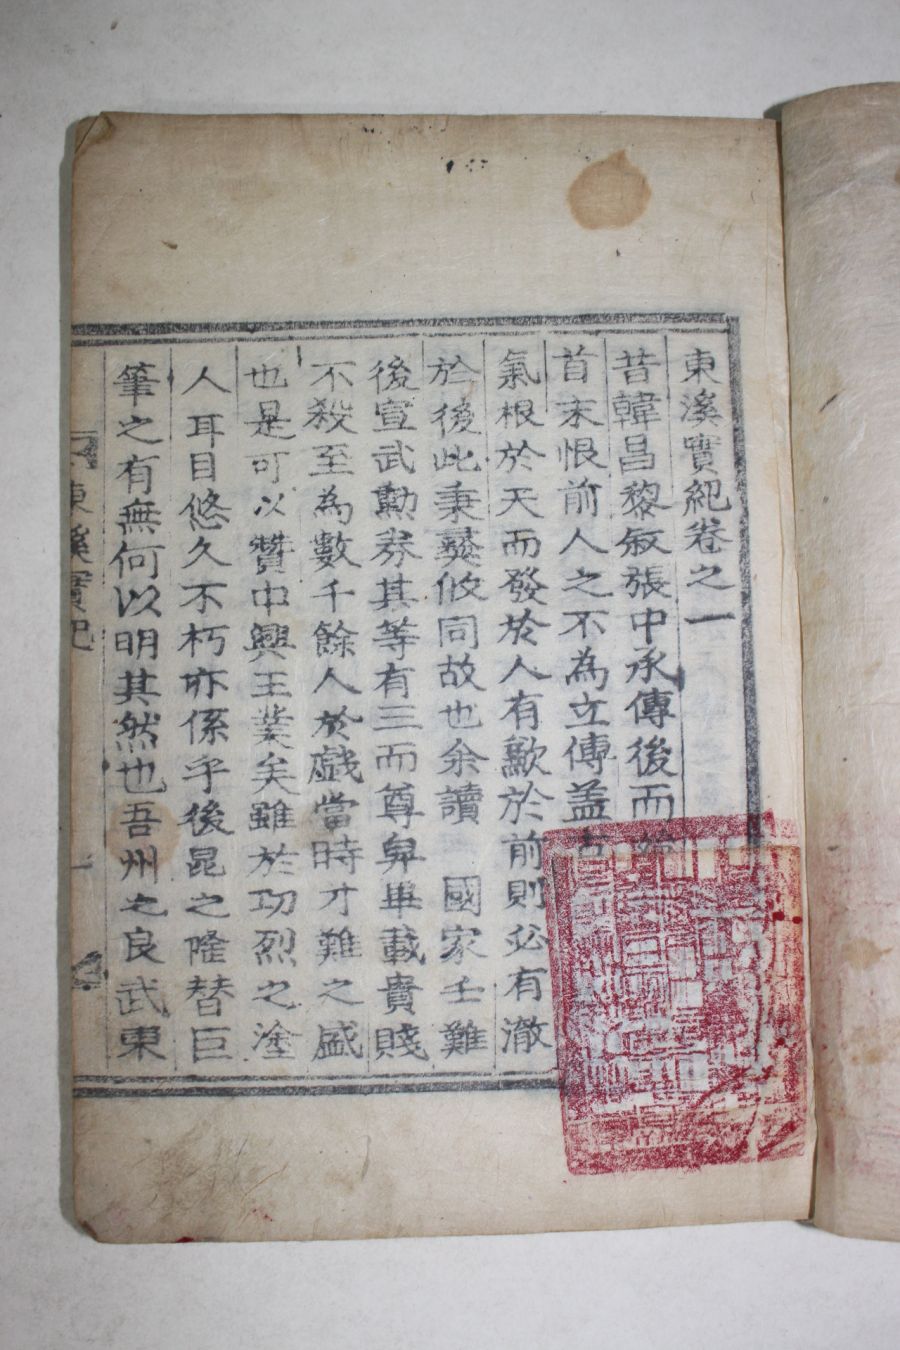 東溪實紀卷之一
昔韓昌黎敘張中丞傳後而
首末恨前人之不為立傳盖
氣根於天而發於人有歉於前則必有澈
於後此秉彝攸同故也余讀　國家壬難
後宣武勳券其等有三而尊卑畢載貴賤
不殺至為數千餘人於戲當時才難之盛
也是可以贊中興王業矣雖於功烈之塗
人耳目悠久不朽亦係乎後昆之隆替巨
筆之有無何以明其然也吾州之良武東
東溪實紀
一